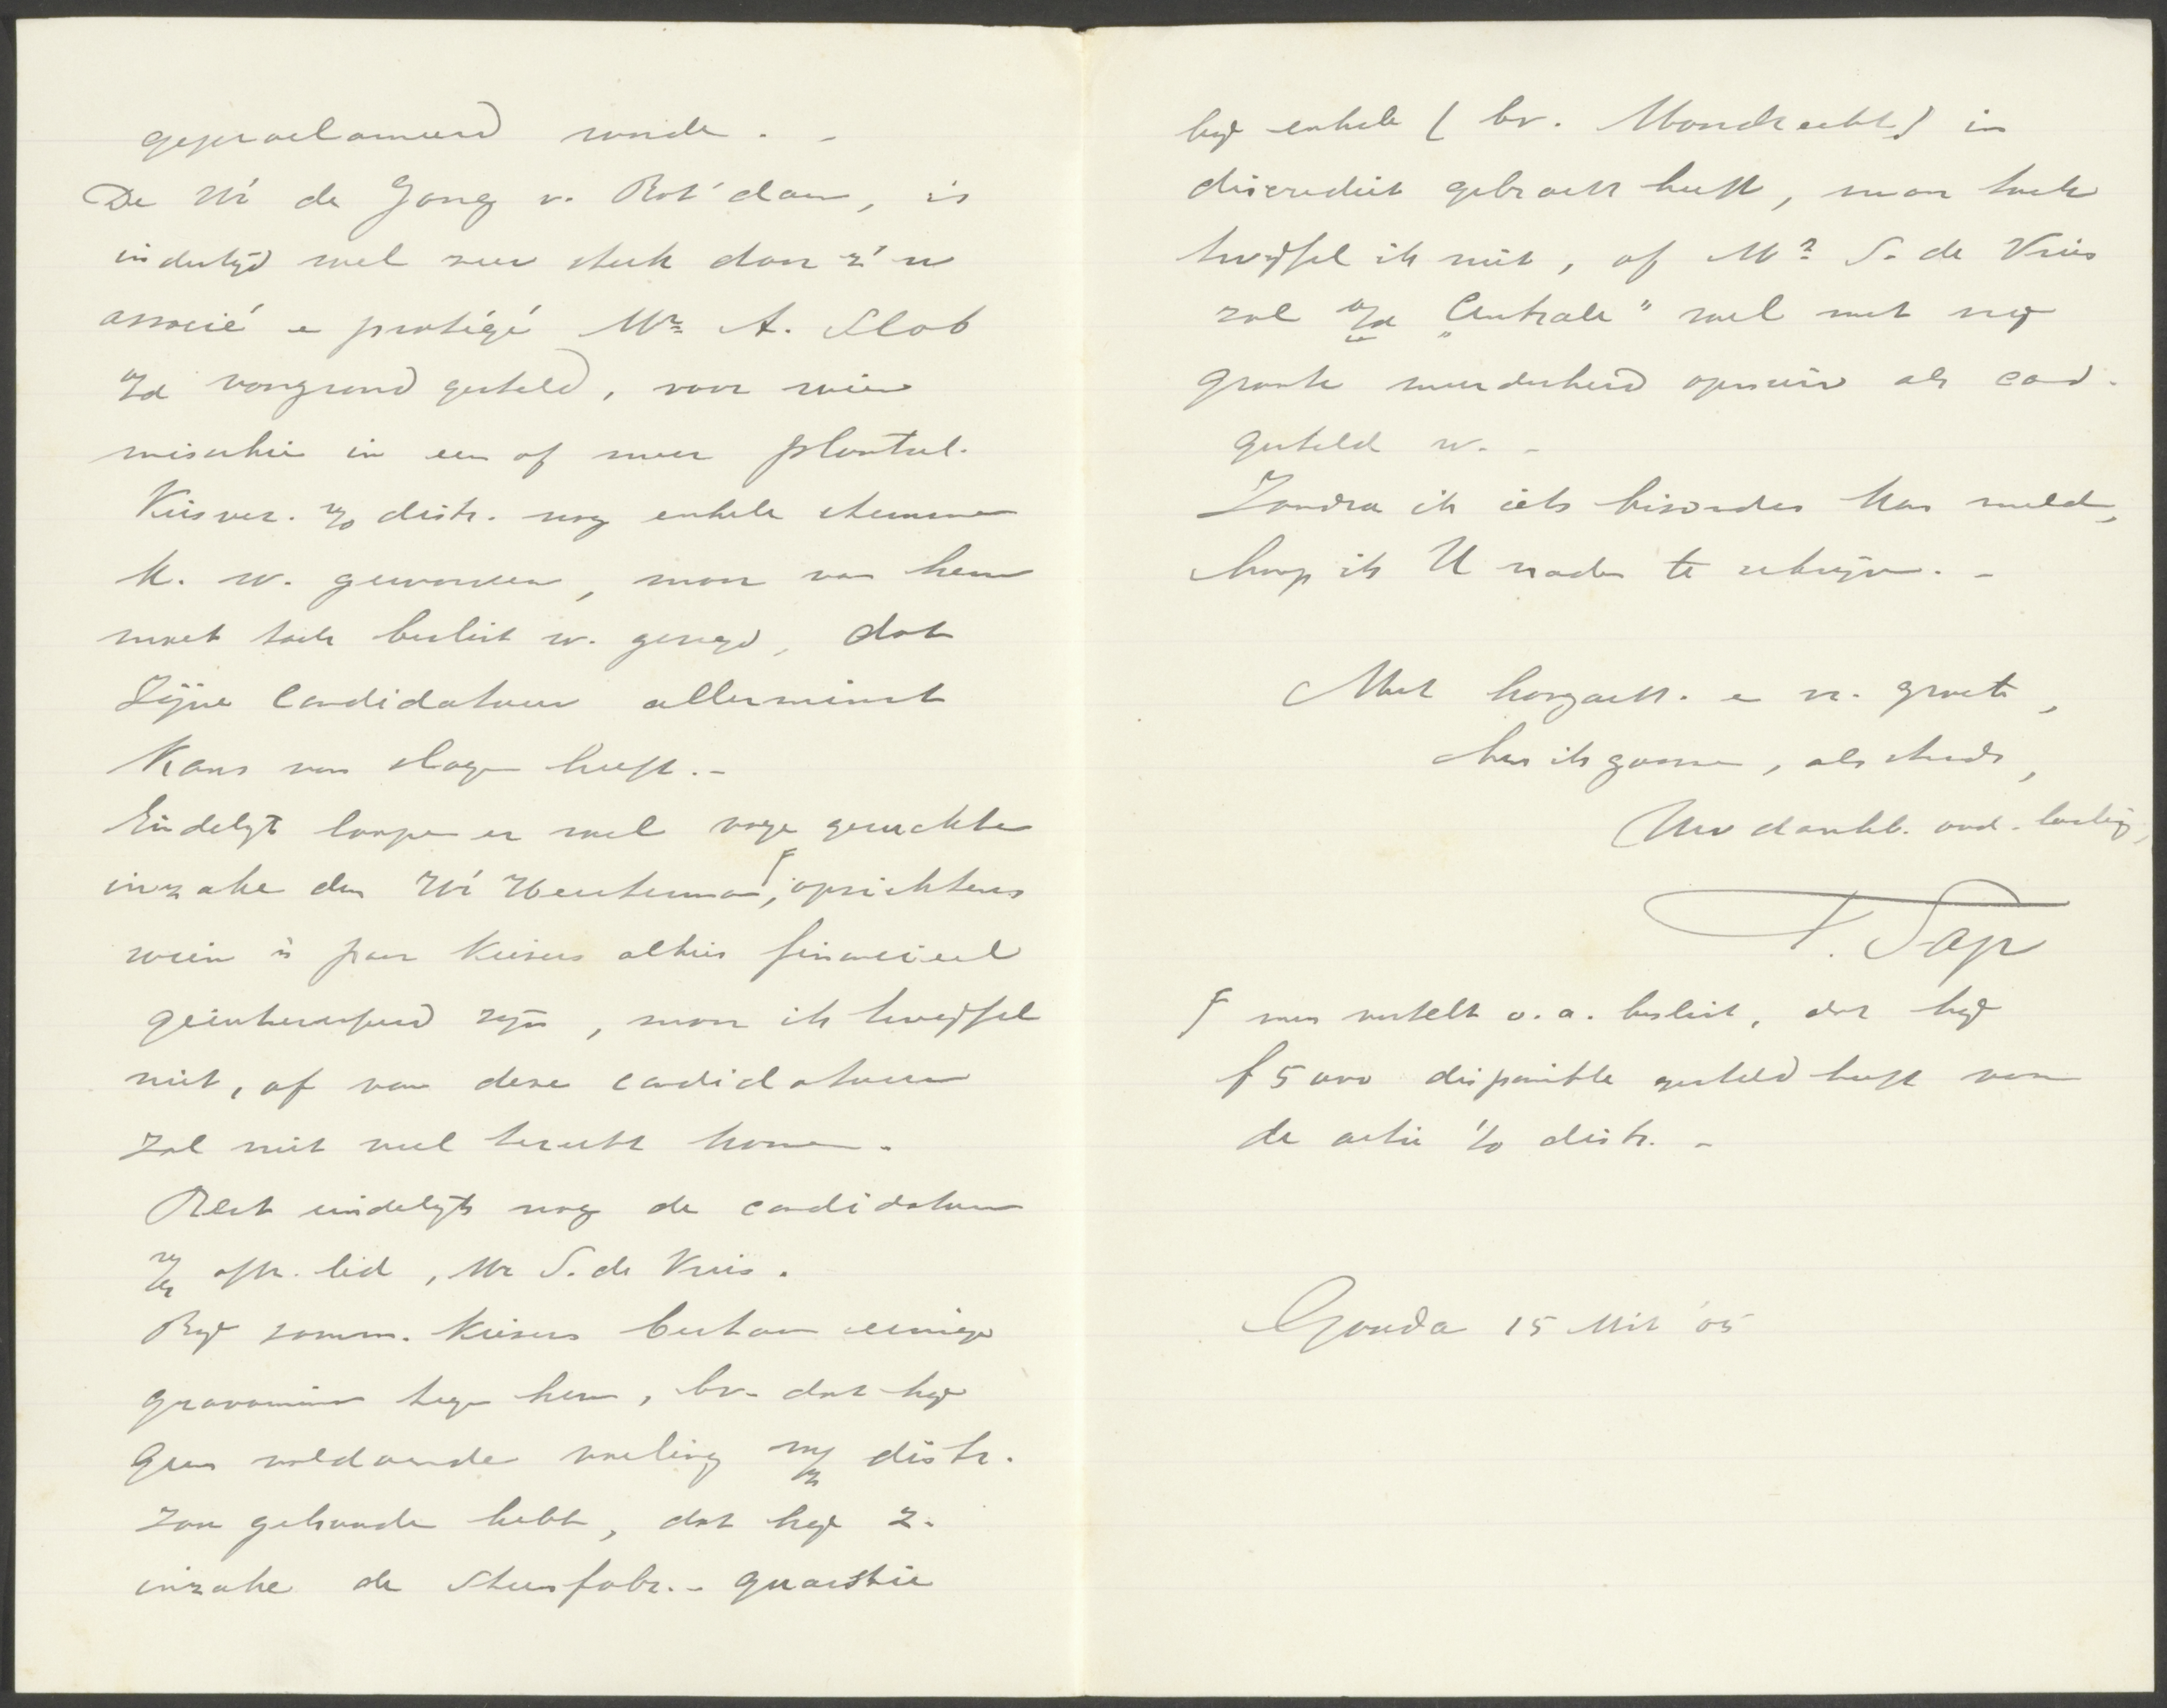 geproclameerd worde. -
De Hr de Jong v. Rott'dam, is
indertijd wel zeer sterk door z'n
associé e protégé Mr. A. Slob
o/d voorgrond gesteld, voor wien
misschien in een of meer plaatsel.
Kiesver. v/o distr. nog enkele stemmen
k. w. gewonnen, maar van hem
moet toch beslist w. gezegd, dat
Zijne Candidatuur allerminst
Kans van slagen heeft. -
Eindelijk loopen er wel vage geruchten
inzake den Hr , ten opzichte
wien 'n paar Kiezers alhier financieel
geïnteresseerd zijn, maar ik twijfel
niet, of van deze candidatuur
zal niet veel terecht komen.
Rest eindelijk nog de candidatuur
v/h aftr. lid, Mr S. de Vries.
Bij somm. Kiezers bestaan eenige
gravamina tegen hem, bv. dat hij
geen voldoende voeling m/z distr.
zou gehouden hebb, dat hij z.
inzake de Steenfabr. - quaestie
bij enkele (bv. Moordrecht) in
discrediet gebracht heeft, maar toch
twijfel ik niet, of Mr. S. de Vries
zal o/d „Centrale" wel met nog
groote meerderheid opnieuw als cand.
gesteld w. -
Zoodra ik iets bizonders kan meld,
hoop ik U nader te schrijven. -
Met hoogacht. e vr. groete,
ben ik gaarne, als steeds,
Uw dankb. oud-leerling,
T. Sap
F men vertelt o.a. beslist, dat hij
f 5000 disponible gesteld heeft voor
de actie i/o distr. -
Gouda 15 Mrt '05